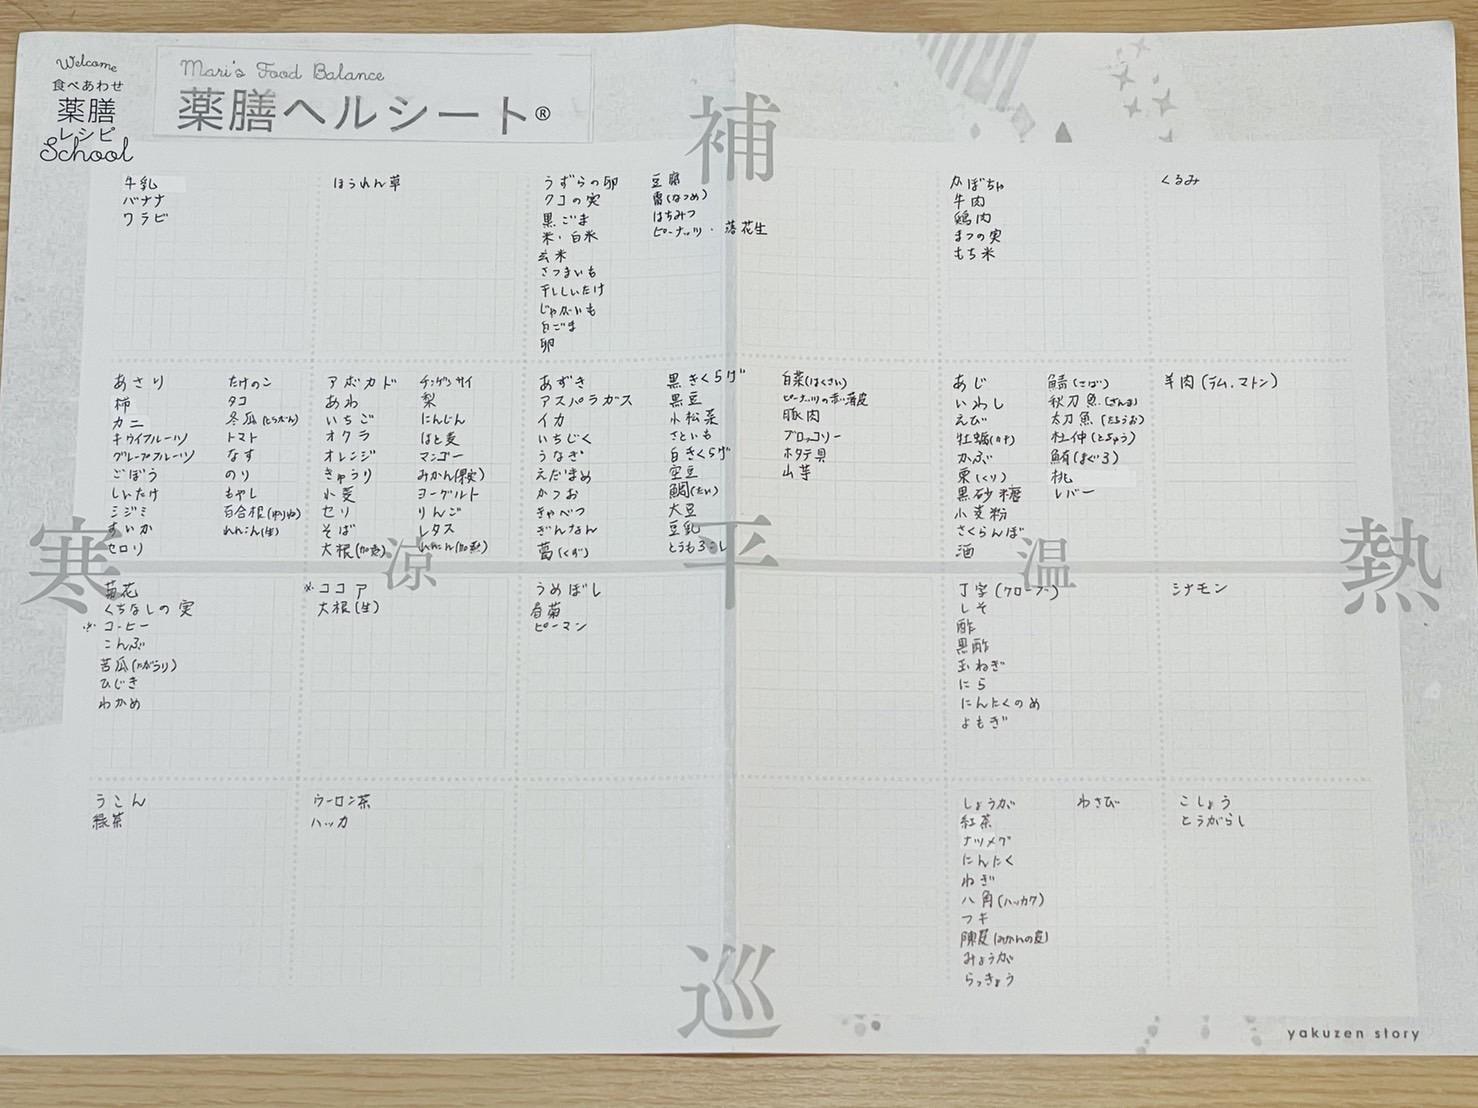 Welcome
食べあわせ
薬膳
レシピ
School
Mari's Food Balance
薬膳ヘルシート®
補
牛乳
バナナ
ワラビ
ほうれん草
うずらの卵
クコの実
黒ごま
米・白米
玄米
さつまいも
干ししいたけ
じゃがいも
白ごま
卵
豆腐
棗(なつめ)
はちみつ
ピーナッツ・落花生
かぼちゃ
牛肉
鶏肉
まつの実
もち米
くるみ
あさり
柿
カニ
キウイフルーツ
グレープフルーツ
ごぼう
しいたけ
シジミ
すいか
セロリ
たけのこ
タコ
冬瓜(とうがん)
トマト
なす
のり
もやし
百合根(ゆりね)
れんこん(生)
アボカド
あわ
いちご
オクラ
オレンジ
きゅうり
小麦
セリ
そば
大根(加熱)
チンゲンサイ
梨
にんじん
はと麦
マンゴー
みかん(果実)
ヨーグルト
りんご
レタス
れんこん(加熱)
あずき
アスパラガス
イカ
いちじく
うなぎ
えだまめ
かつお
きゃべつ
ぎんなん
葛(くず)
黒きくらげ
黒豆
小松菜
さといも
白きくらげ
空豆
鯛(たい)
大豆
豆乳
とうもろこし
白菜(はくさい)
ピーナッツの赤い薄皮
豚肉
ブロッコリー
ホタテ貝
山芋
あじ
いわし
えび
牡蠣(カキ)
かぶ
栗(くり)
黒砂糖
小麦粉
さくらんぼ
酒
鯖(さば)
秋刀魚(さんま)
太刀魚(たちうお)
杜仲(とちゅう)
鮪(まぐろ)
桃
レバー
羊肉(ラム、マトン)
寒
涼
平
温
熱
菊花
くちなしの実
※コーヒー
こんぶ
苦瓜(にがうり)
ひじき
わかめ
※ココア
大根(生)
うめぼし
春菊
ピーマン
丁字(クローブ)
しそ
酢
黒酢
玉ねぎ
にら
にんにくのめ
よもぎ
シナモン
うこん
緑茶
ウーロン茶
ハッカ
しょうが
紅茶
ナツメグ
にんにく
ねぎ
八角(ハッカク)
フキ
陳皮(みかんの皮)
みょうが
らっきょう
わさび
こしょう
とうがらし
巡
yakuzen story